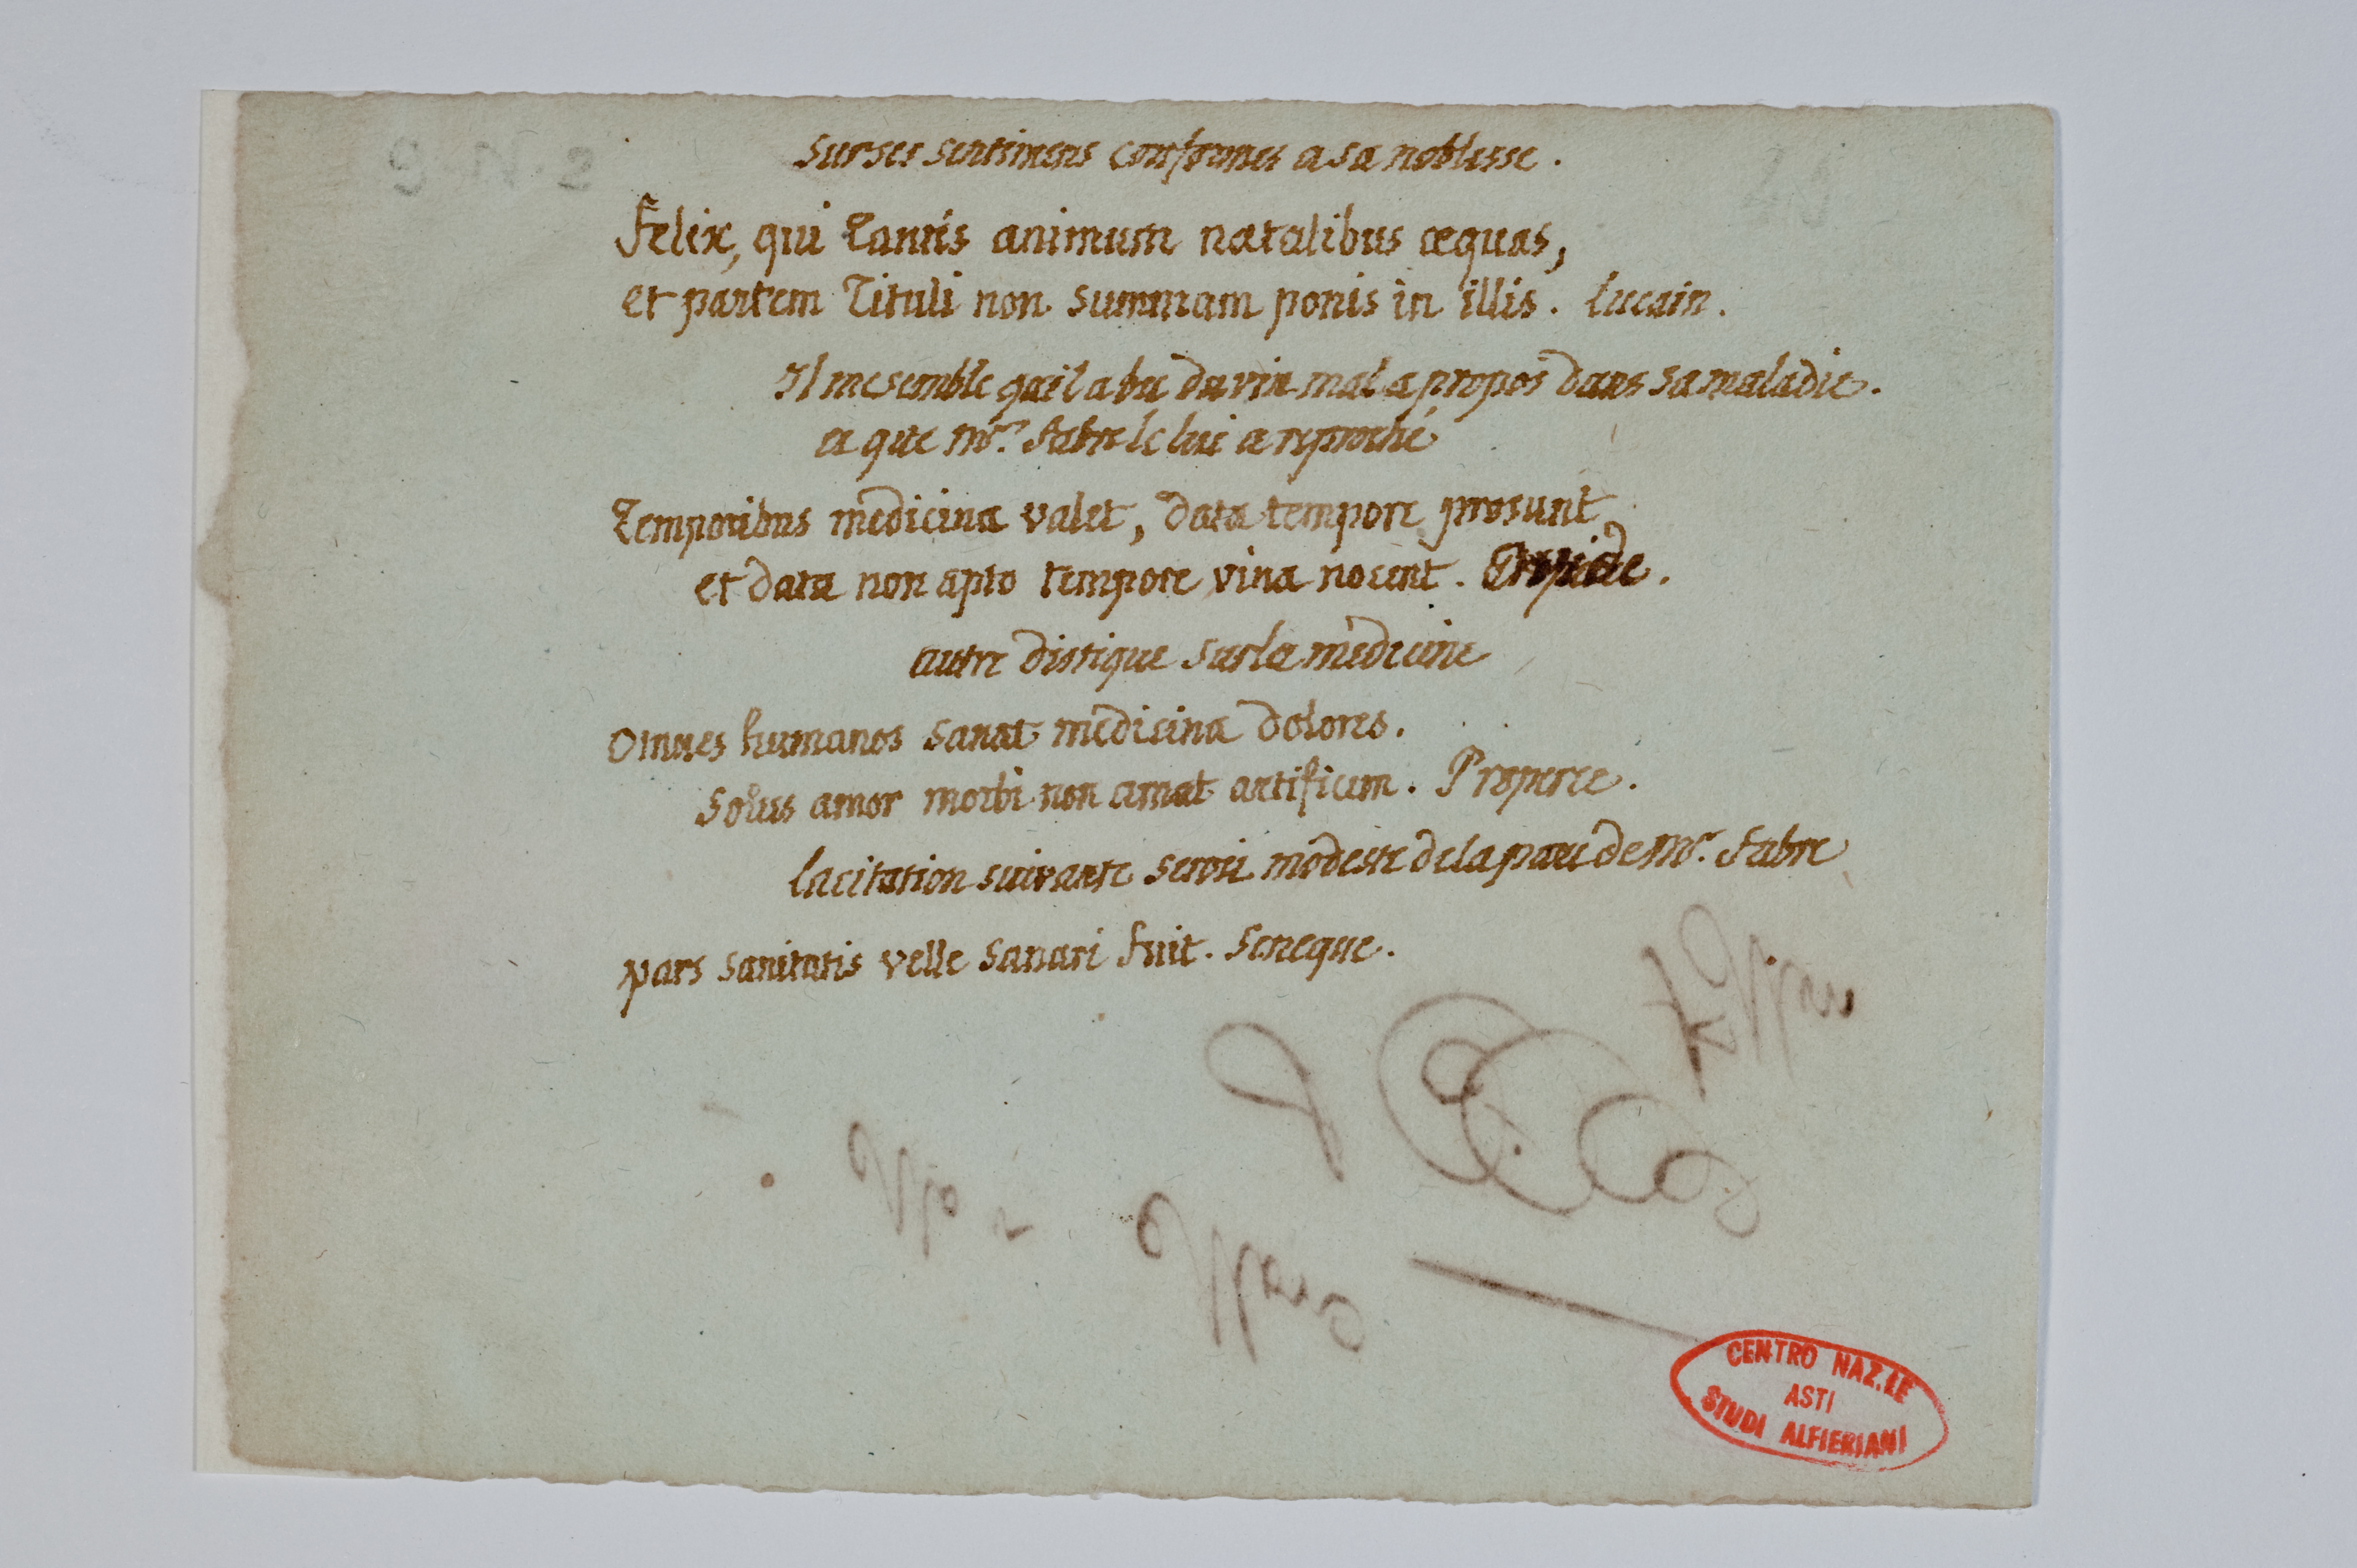 sur ses sentimens conformes a sa noblesse.
felix, qui tantis animum natalibus æquas,
et partem tituli non summam ponis in illis. lucain.
Il me semble qu'il a bu du vin mal a propos dans sa maladie.
et que Mr. fabre le lui a reproché
Temporibus medicina valet, data tempore prosunt
et data non apto tempore vina nocent. Ovide.
autre distique sur la médecine
omnes humanos sanat medicina dolores.
solus amor morbi non amat artificem. Properce.
la citation suivante seroit modeste de la part de Mr. fabre
pars sanitatis velle sanari fuit. Seneque.
CENTRO NAZ.LE
ASTI
STUDI ALFIERIANI